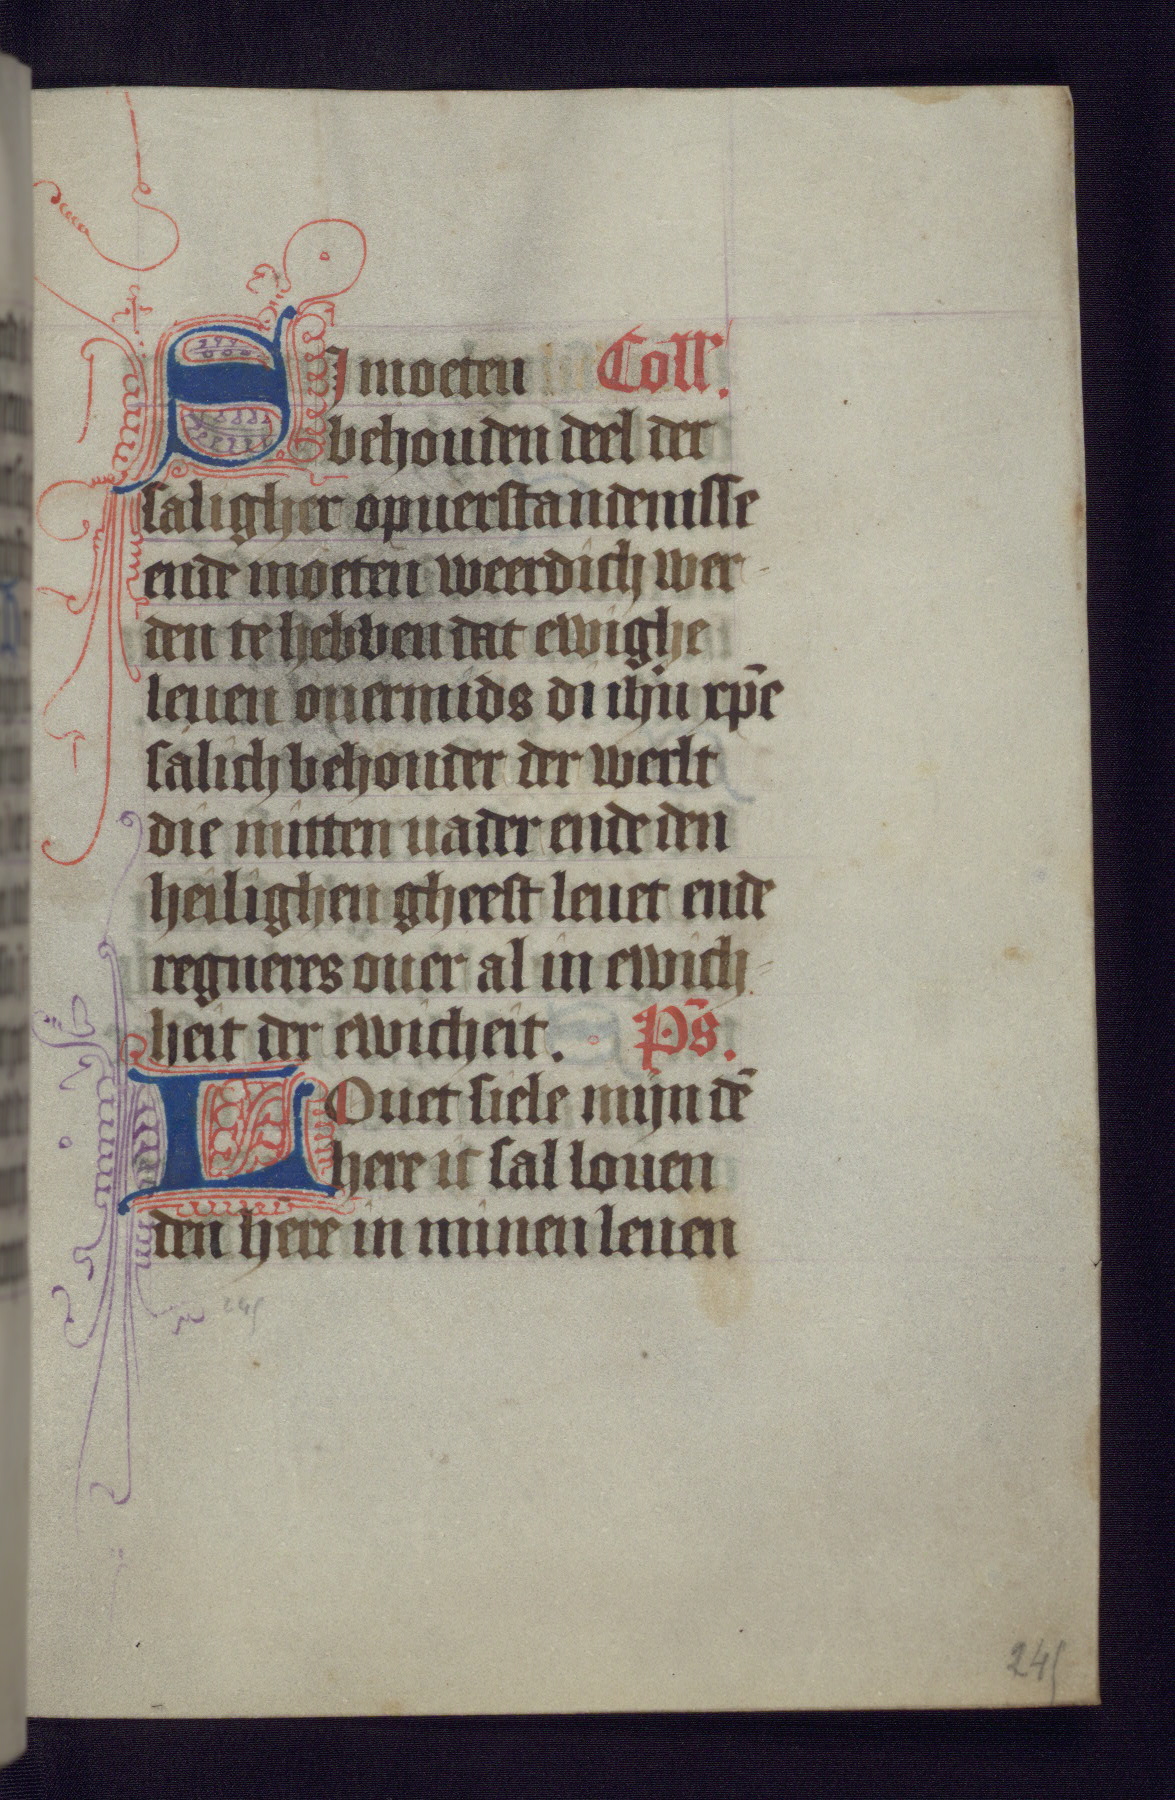 SJ moeten Coll'.
behouden deel der
saligher opuerstandenisse
ende moeten weerdich wer-
den te hebben dat ewighe
leuen ouermids di ihu xpe
salich behouder der werlt
die mitten uader ende den
heilighen gheest leuet ende
regneres ouer al in ewich-
heit der ewicheit. Ps.
LOuet siele mijn dē
here ic sal louen
den here in minen leuen
245
245